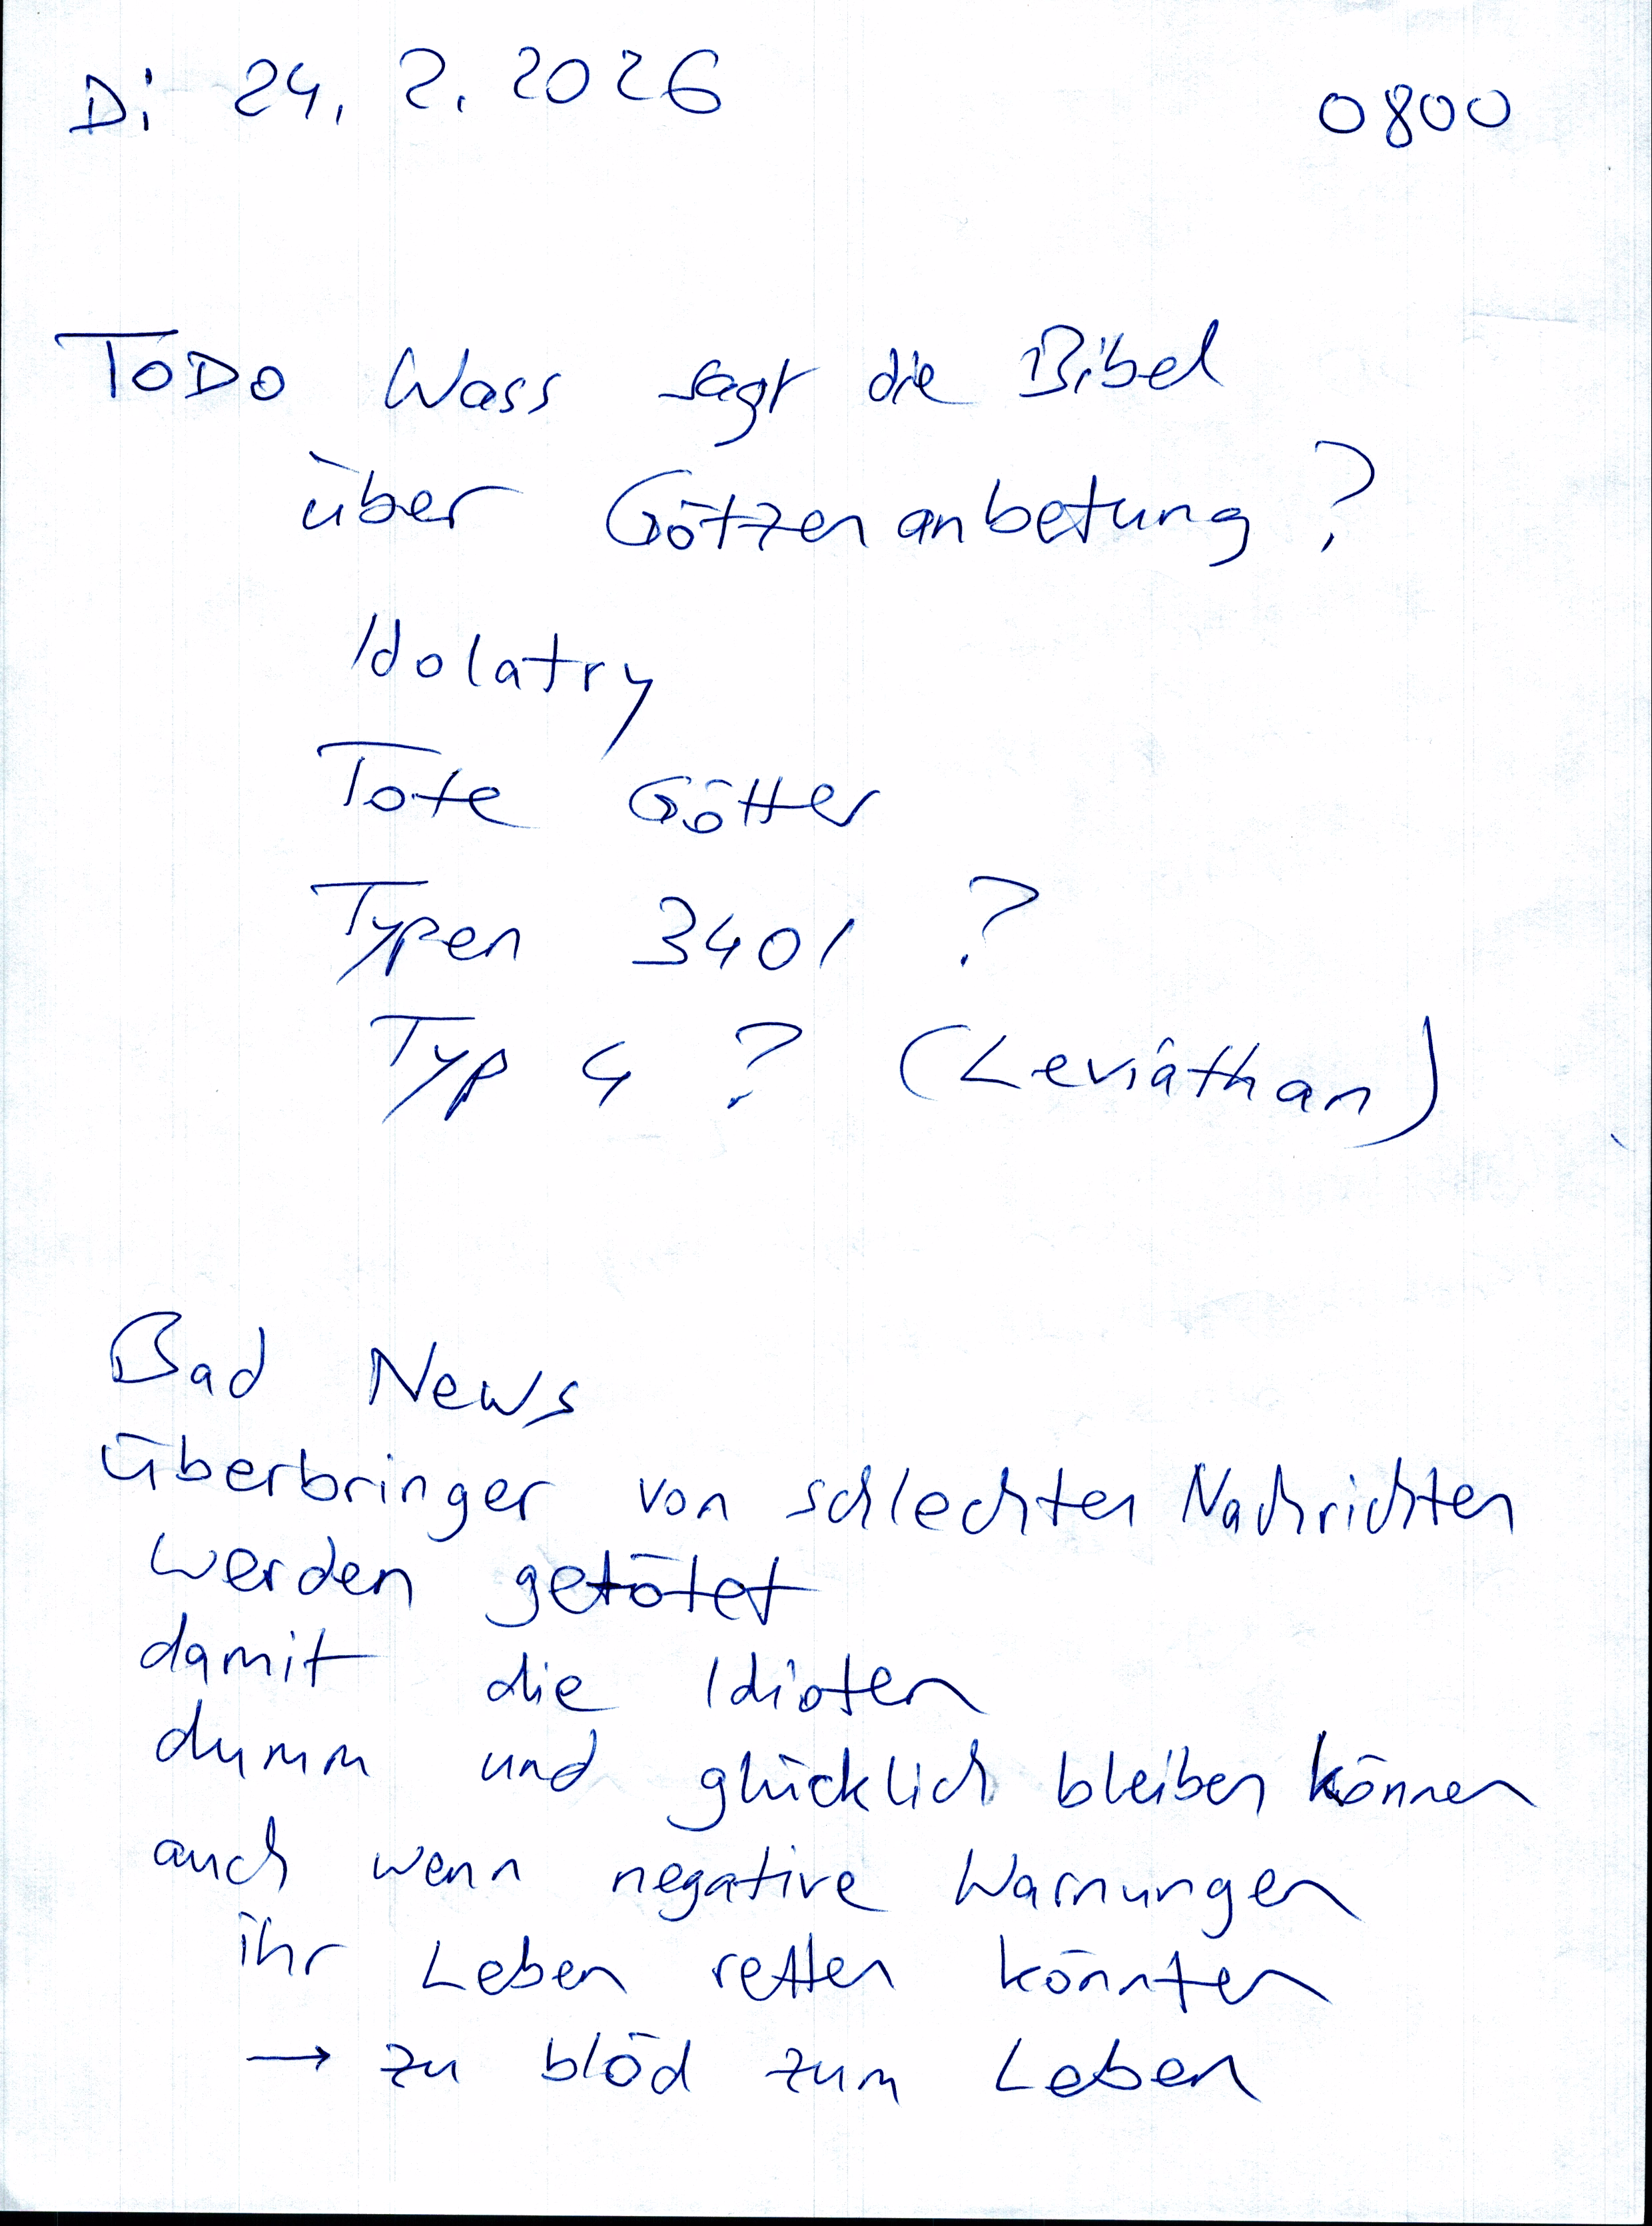 Di 24. 2. 2026 0800
ToDo Wass sagt die Bibel
über Götzenanbetung ?
Idolatry
Tote Götter
Typen 3401 ?
Typ 4 ? (Leviathan)
Bad News
Überbringer von schlechten Nachrichten
werden getötet
damit die Idioten
dumm und glücklich bleiben können
auch wenn negative Warnungen
ihr Leben retten könnten
→ zu blöd zum Leben